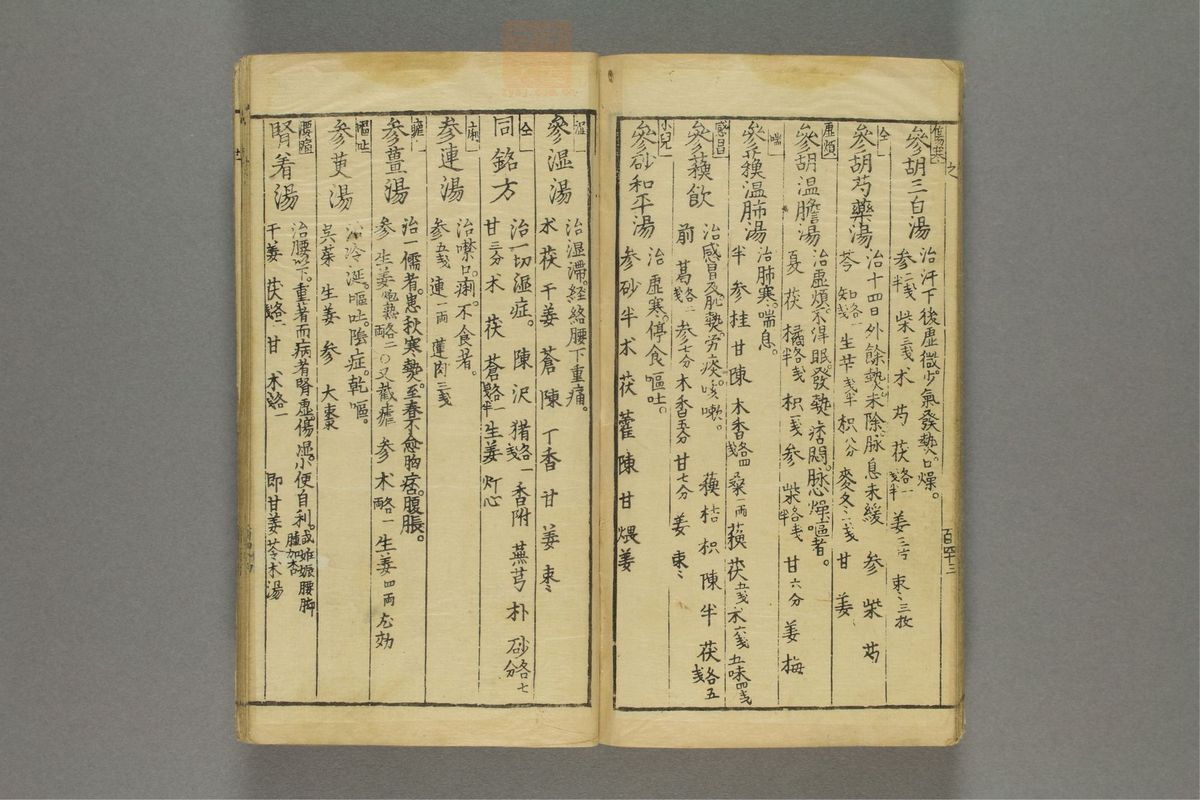 之
傷寒
參胡三白湯
治汗下後虛微少氣發熱口燥。
參二戔半 柴三戔 术 芍 茯各一戔半 姜三片 枣三枚
仝
參胡芍藥湯
治十四日外餘熱未除脉息未緩 參 柴 芍
芩 知各一戔 生苄戔半 枳八分 麥冬六戔 甘 姜
虛煩
參胡温膽湯
治虛煩不得眠。發熱痞悶。脉心燥嘔者。
夏 茯 橘各戔 枳一戔 參 柴各戔半 甘六分 姜 梅
喘
參蘓温肺湯
治肺寒。喘息。
半 參 桂 甘 陳 木香各四戔 桑一両 蘓 茯五戔 术六戔 五味四戔
感冒
參蘓飲
治感冒及肌熱。労痰。咳嗽。 蘓 桔 枳 陳 半 茯各五戔
前 葛各二戔 參七分 木香五分 甘七分 姜 枣
小兒
參砂和平湯
治虛寒。停食嘔吐。
參 砂 半 术 茯 藿 陳 甘 煨姜
百四十三
湿
參湿湯
治湿滯。経絡腰下重痛。
术 茯 干姜 蒼 陳 丁香 甘 姜 枣
仝
同銘方
治一切濕症。 陳 沢 猪各一戔 香附 蕪 芎 朴 砂各七分
甘三分 术 茯 蒼各一戔半 生姜 灯心
痢
參連湯
治噤口。痢。不食者。
參五戔 連一両 蓮肉三戔
瘧
參薑湯
治一儒者。患秋寒熱。至春不愈胸痞。腹脹。
參 生姜炮熟各二両 ○又截瘧 參 术各一両 生姜四両 尤効
嘔吐
參萸湯
治冷涎。嘔吐。陰症。乾嘔。
吳茱 生姜 參 大枣
腰湿
腎着湯
治腰以下。重者而病者腎虛。傷湿。小便自利。或妊娠腰脚腫加杏
干姜 茯各二 甘 术各一 即甘姜苓术湯